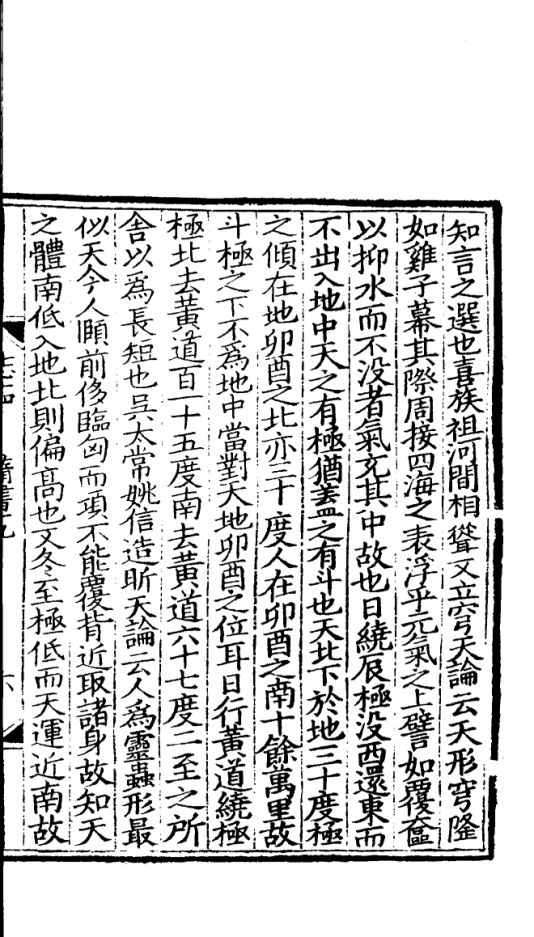 知言之選也喜族祖河間相聳又立穹天論云天形穹隆
如雞子幕其際周接四海之表浮乎元氣之上譬如覆奩
以抑水而不没者氣充其中故也日繞辰極没西還東而
不出入地中天之有極猶蓋之有斗也天北下於地三十度極
之傾在地卯酉之北亦三十度人在卯酉之南十餘萬里故
斗極之下不爲地中當對天地卯酉之位耳日行黃道繞極
極北去黃道百一十五度南去黃道六十七度二至之所
舍以爲長短也吳太常姚信造昕天論云人爲靈蟲形最
似天今人頥前侈臨匈而項不能覆背近取諸身故知天
之體南低入地北則偏高也又冬至極低而天運近南故
六